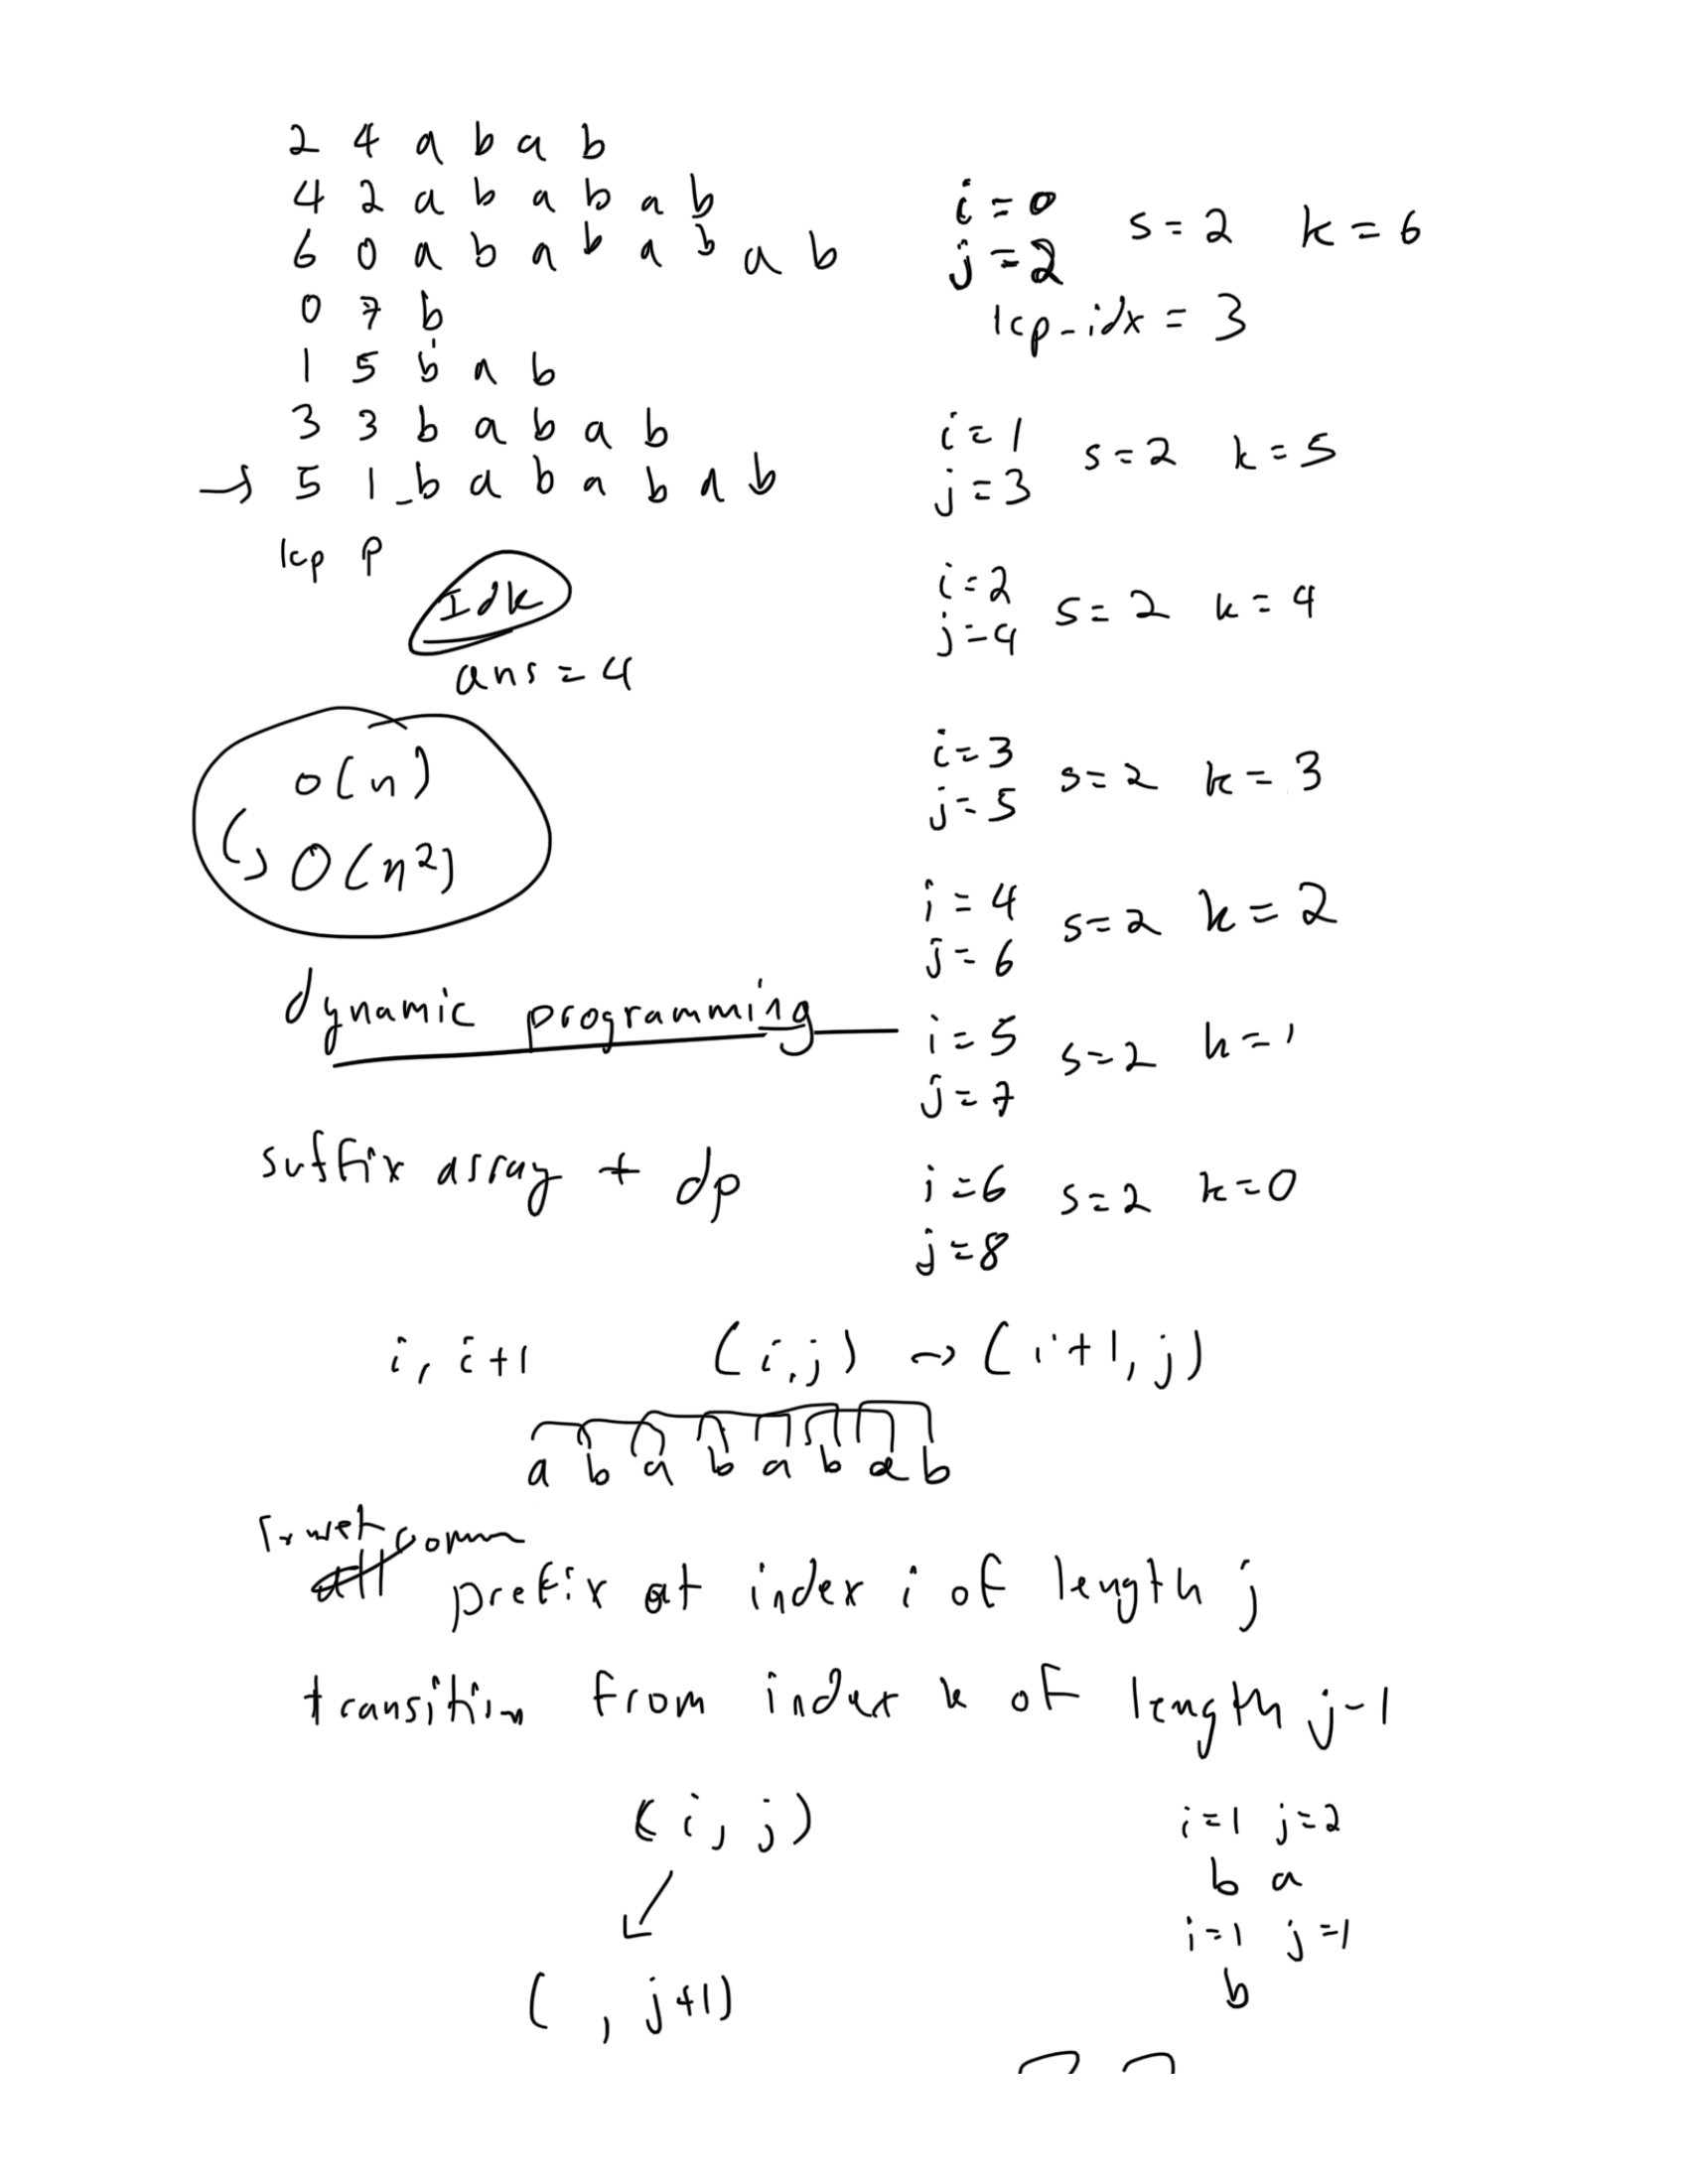 2 4 a b a b
4 2 a b a b a b
6 0 a b a b a b a b
0 7 b
1 5 b a b
3 3 b a b a b
→ 5 1 b a b a b a b
lcp p
Idk
ans = 4
o(n)
↪ O(n²)
dynamic programming
suffix array + dp
i = 0
j = 2 s = 2 k = 6
lcp-idx = 3
i = 1
j = 3 s = 2 k = 5
i = 2
j = 4 s = 2 k = 4
i = 3
j = 5 s = 2 k = 3
i = 4
j = 6 s = 2 k = 2
i = 5
j = 7 s = 2 k = 1
i = 6
j = 8 s = 2 k = 0
i, i+1 (i,j) → (i+1, j)
a b a b a b a b
com
prefix at index i of length j
transition from index k of length j-1
(i, j)
( , j+1)
i=1 j=2
b a
i=1 j=1
b